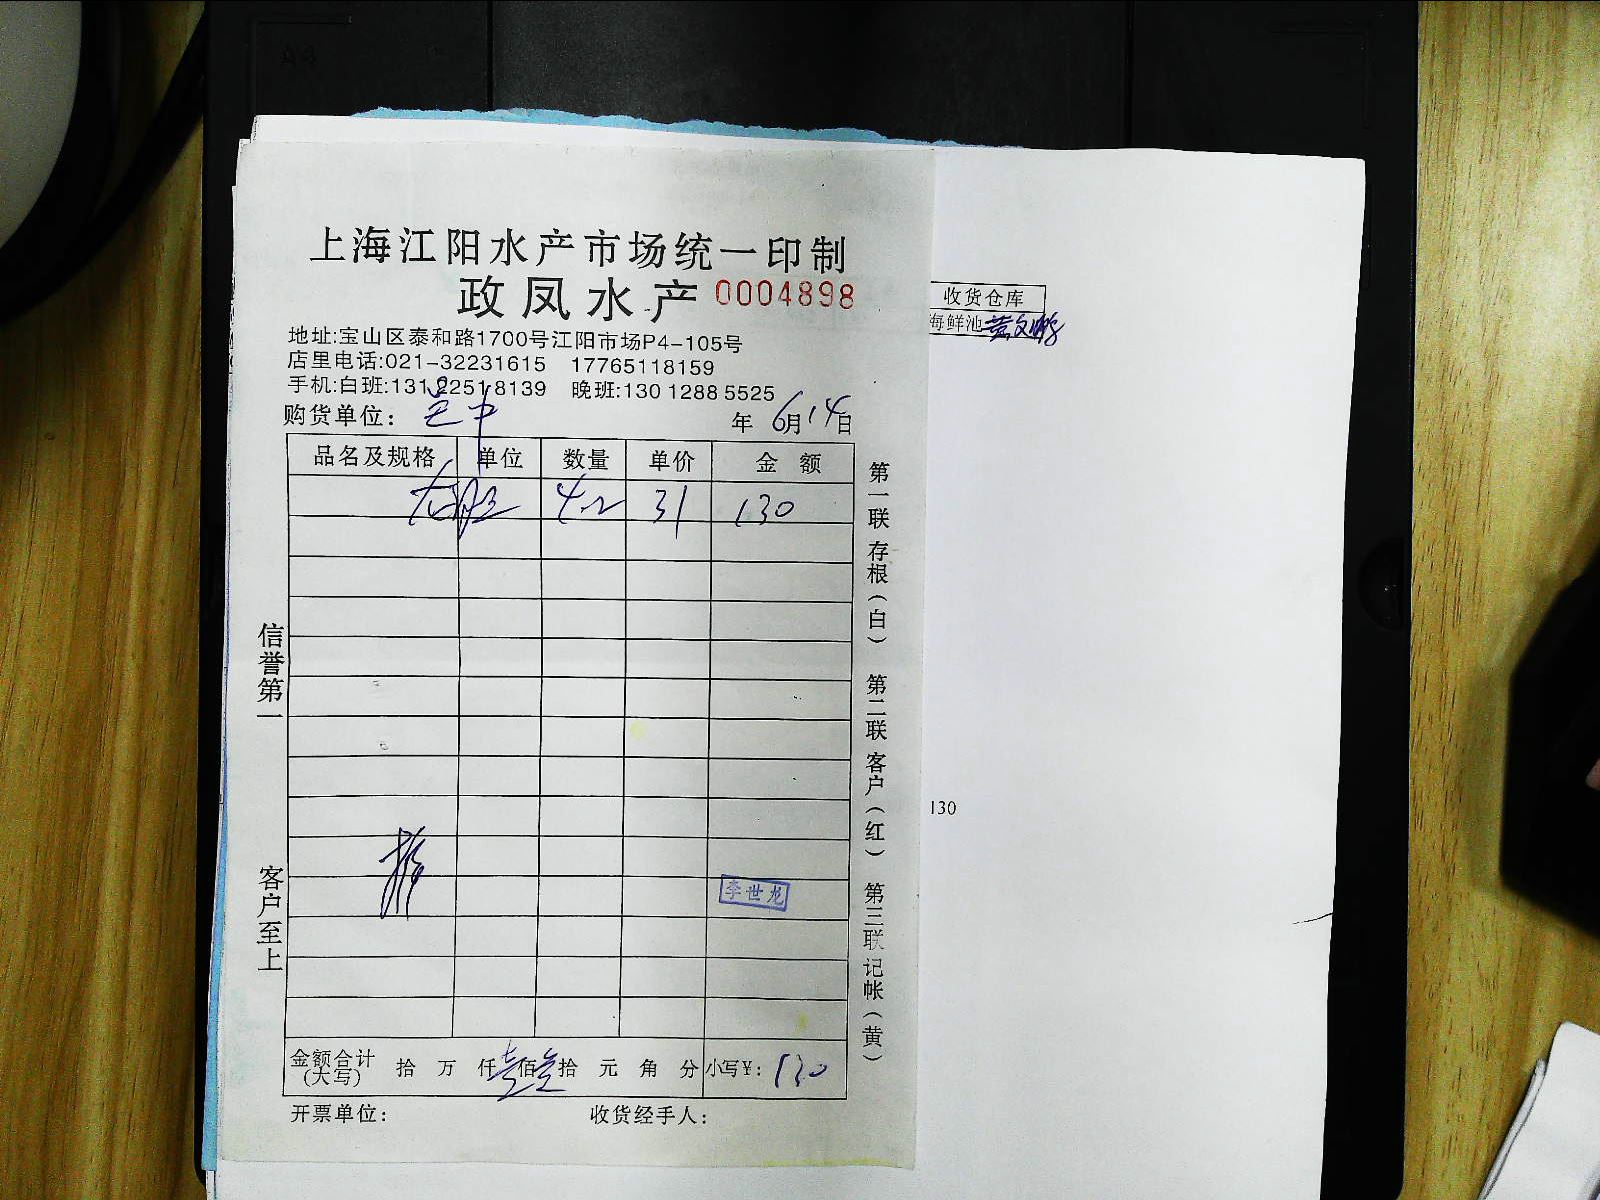 上海江阳水产市场统一印制
政凤水产 0004898
地址:宝山区泰和路1700号江阳市场P4-105号
店里电话:021-32231615 17765118159
手机:白班:131 2251 8139 晚班:130 1288 5525
购货单位: 年 6月14日
品名及规格 单位 数量 单价 金 额
4.2 31 130
李世龙
金额合计(大写) 拾 万 仟 壹佰叁拾 元 角 分 小写¥: 130
开票单位: 收货经手人:
信誉第一
客户至上
第一联存根(白) 第二联客户(红) 第三联记帐(黄)
收货仓库
海鲜池
130